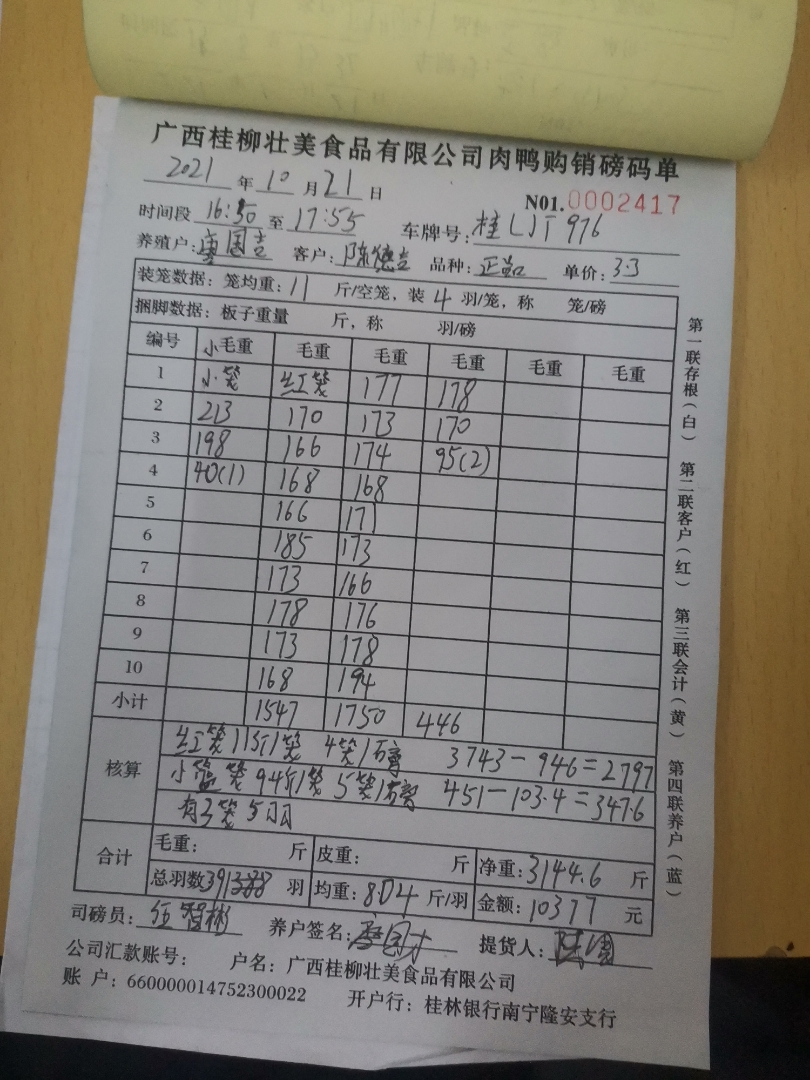 广西桂柳壮美食品有限公司肉鸭购销磅码单
2021 年 10 月 21 日
N01.0002417
时间段 16:50 至 17:55 车牌号: 桂LJT976
养殖户: 国吉 客户: 陈德吉 品种: 正品 单价: 3.3
装笼数据: 笼均重: 11 斤/空笼, 装 4 羽/笼, 称 笼/磅
捆脚数据: 板子重量 斤, 称 羽/磅
编号 小毛重 毛重 毛重 毛重 毛重 毛重
1 小笼 红笼 177 178
2 213 170 173 170
3 198 166 174 95(2)
4 40(1) 168 168
5 166 171
6 185 173
7 173 166
8 178 176
9 173 178
10 168 194
小计 1547 1750 446
核算
红笼11斤/笼 4笼/磅 3743-946=2797
小笼 9.4斤/笼 5笼/磅 451-103.4=347.6
有3笼5羽
合计
毛重: 斤 皮重: 斤 净重: 3144.6 斤
总羽数 391 羽 均重: 8.04 斤/羽 金额: 10377 元
司磅员: 伍智彬 养户签名: 提货人:
公司汇款账号: 户名: 广西桂柳壮美食品有限公司
账 户: 660000014752300022 开户行: 桂林银行南宁隆安支行
第一联存根(白) 第二联客户(红) 第三联会计(黄) 第四联养户(蓝)